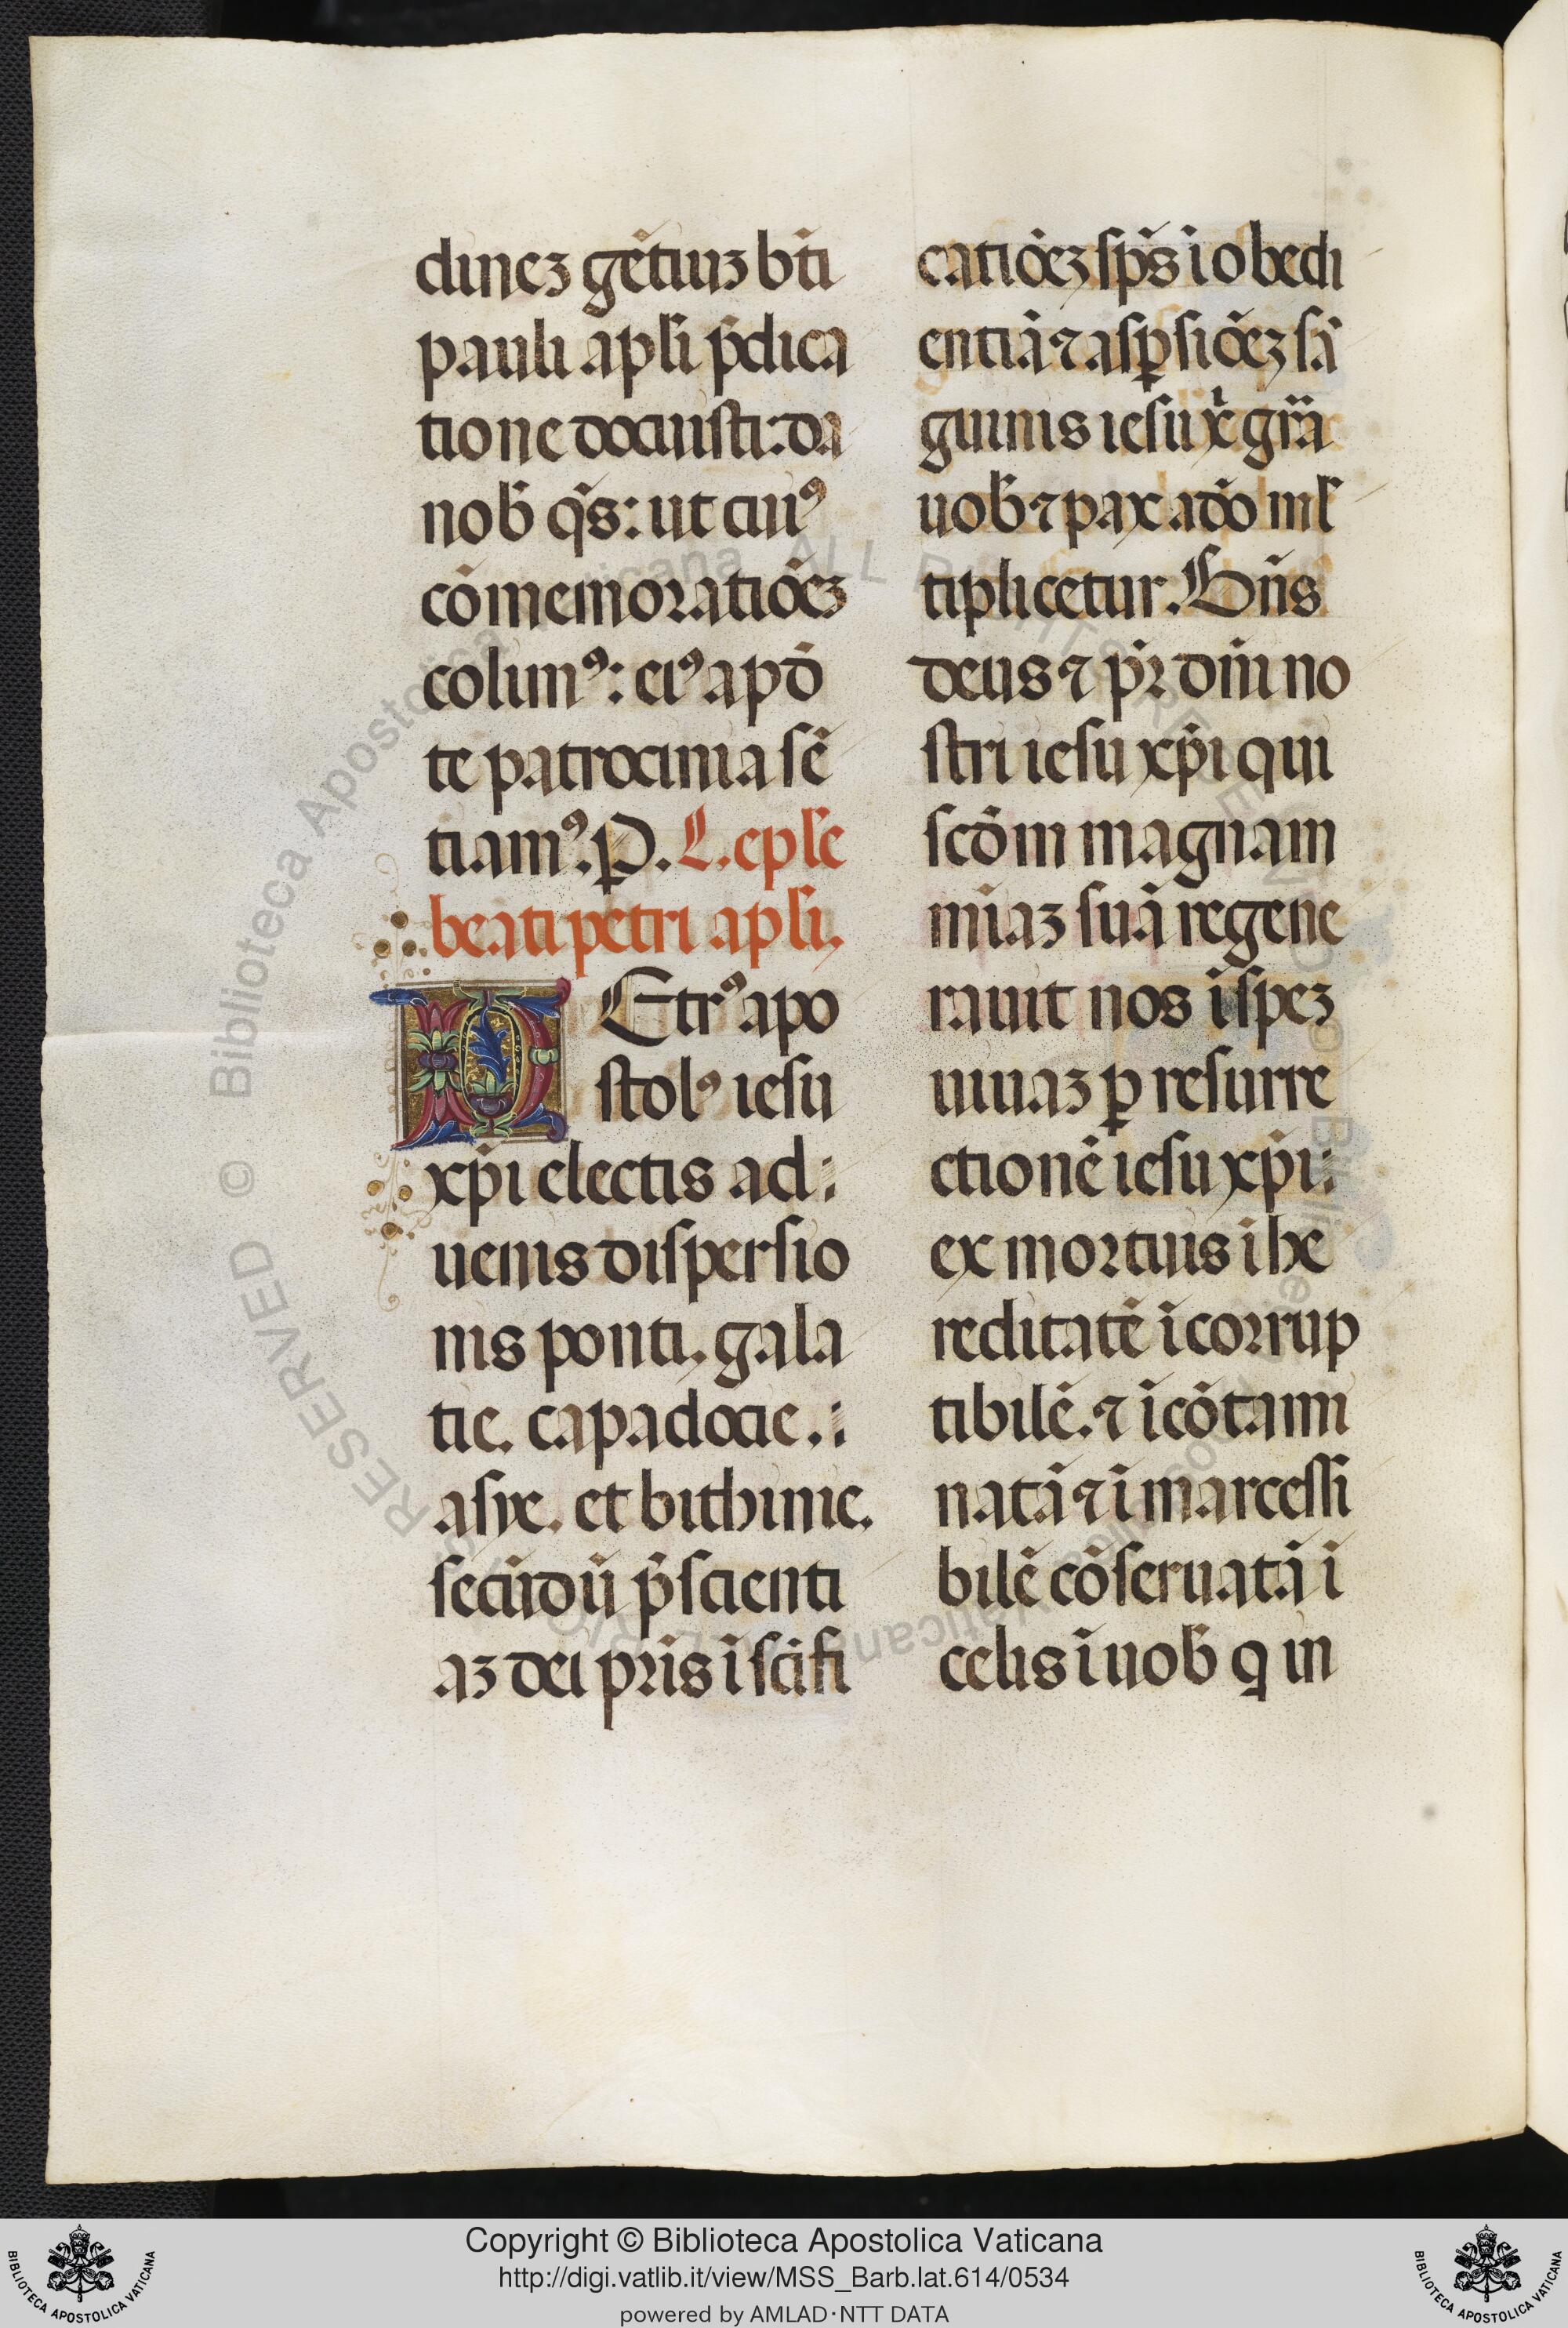 dinez gētiuz bt̄i
pauli apl̄i p̄dica
tione docuisti: da
nob̄ q̄s: ut cuiꝰ
cōmemoratiōez
colimꝰ: eiꝰ apd̄
te patrocinia sē
tiamꝰ. ꝑ. L. epl̄e
beati petri apl̄i.
PEtrꝰ apo
stolꝰ iesu
xp̄i electis ad:
uenis dispersio
nis ponti. gala
tie. capadocie.:
asye. et bithinie.
secūdū p̄scienti
az dei pr̄is ī sc̄ifi
catiōez sp̄s ī obedi
entiā ⁊ aspsiōez sā
guinis iesu xp̄i gr̄a
uob̄ ⁊ pax a dō ml̄
tiplicetur. Bn̄s
deus ⁊ pr̄ dn̄i no
stri iesu xp̄i qui
scd̄m magnam
mīaz suā regene
rauit nos ī spez
uiuaz ꝑ resurre
ctionē iesu xp̄i:
ex mortuis ī he
reditatē īcorrup
tibilē. ⁊ īcōtami
natā ⁊ īmarcessi
bilē cōseruatā ī
celis ī uob̄ q in
Copyright © Biblioteca Apostolica Vaticana
http://digi.vatlib.it/view/MSS_Barb.lat.614/0534
powered by AMLAD·NTT DATA
BIBLIOTECA APOSTOLICA VATICANA
BIBLIOTECA APOSTOLICA VATICANA